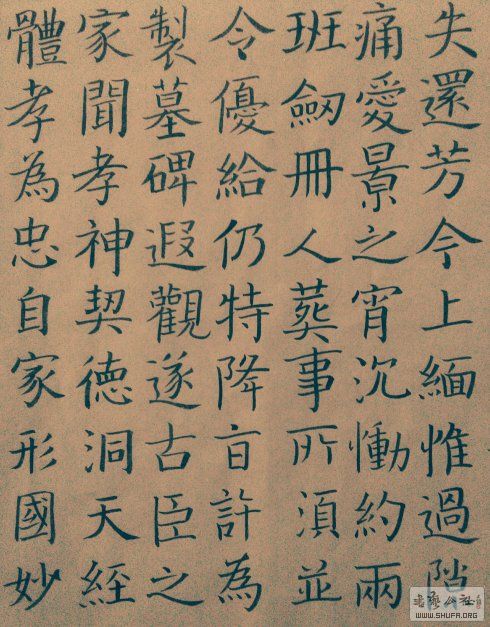 失還芳今上緬惟過隙
痛愛景之宵沉慟約兩
班劔冊人葬事所須並
令優給仍特降旨許為
製墓碑遐觀遂古臣之
家聞孝神契德洞天經
體孝為忠自家形國妙
書藝公社
WWW.SHUFA.ORG